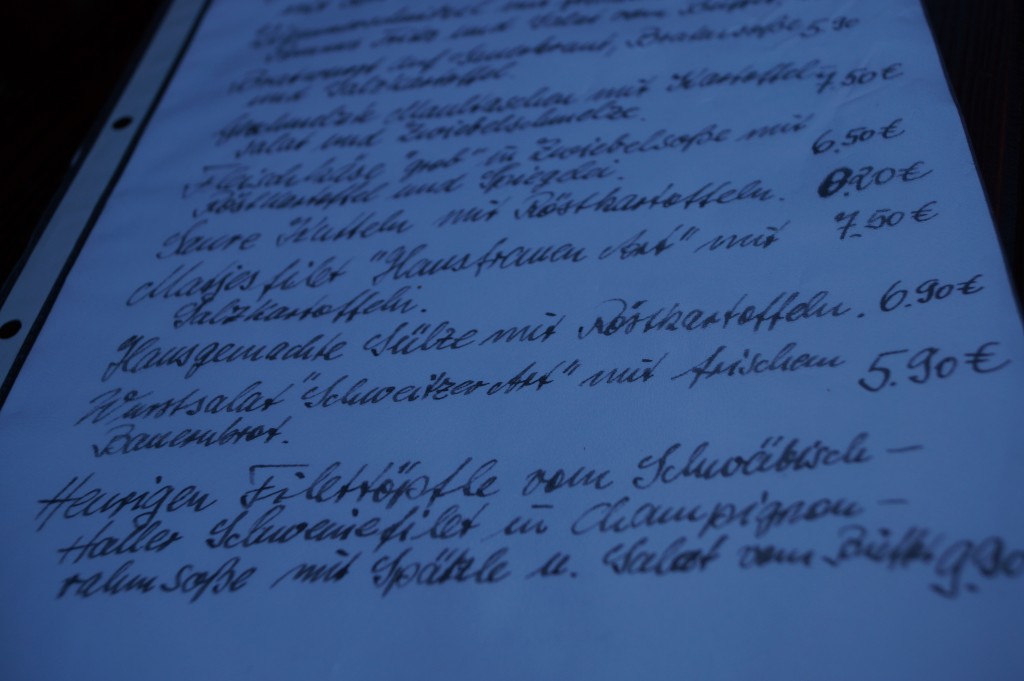 Pommes frites und Salat vom Buffet,
Bratwurst auf Sauerkraut, Bratensoße 5.90
und Salzkartoffel
Maultaschen mit Kartoffel- 7.50€
salat und Zwiebelschmelze.
Fleischkäse "grob" in Zwiebelsoße mit 6.50€
Röstkartoffel und Spiegelei.
Saure Kutteln mit Röstkartoffeln. 6.20€
Matjesfilet "Hausfrauen Art" mit 7.50€
Salzkartoffeln.
Hausgemachte Sülze mit Röstkartoffeln. 6.90€
Wurstsalat "Schweitzer Art" mit frischem 5.90€
Bauernbrot.
Filettöpfle vom Schwäbisch-
Haller Schweinefilet in Champignon-
rahmsoße mit Spätzle u. Salat vom Büffet 9.90